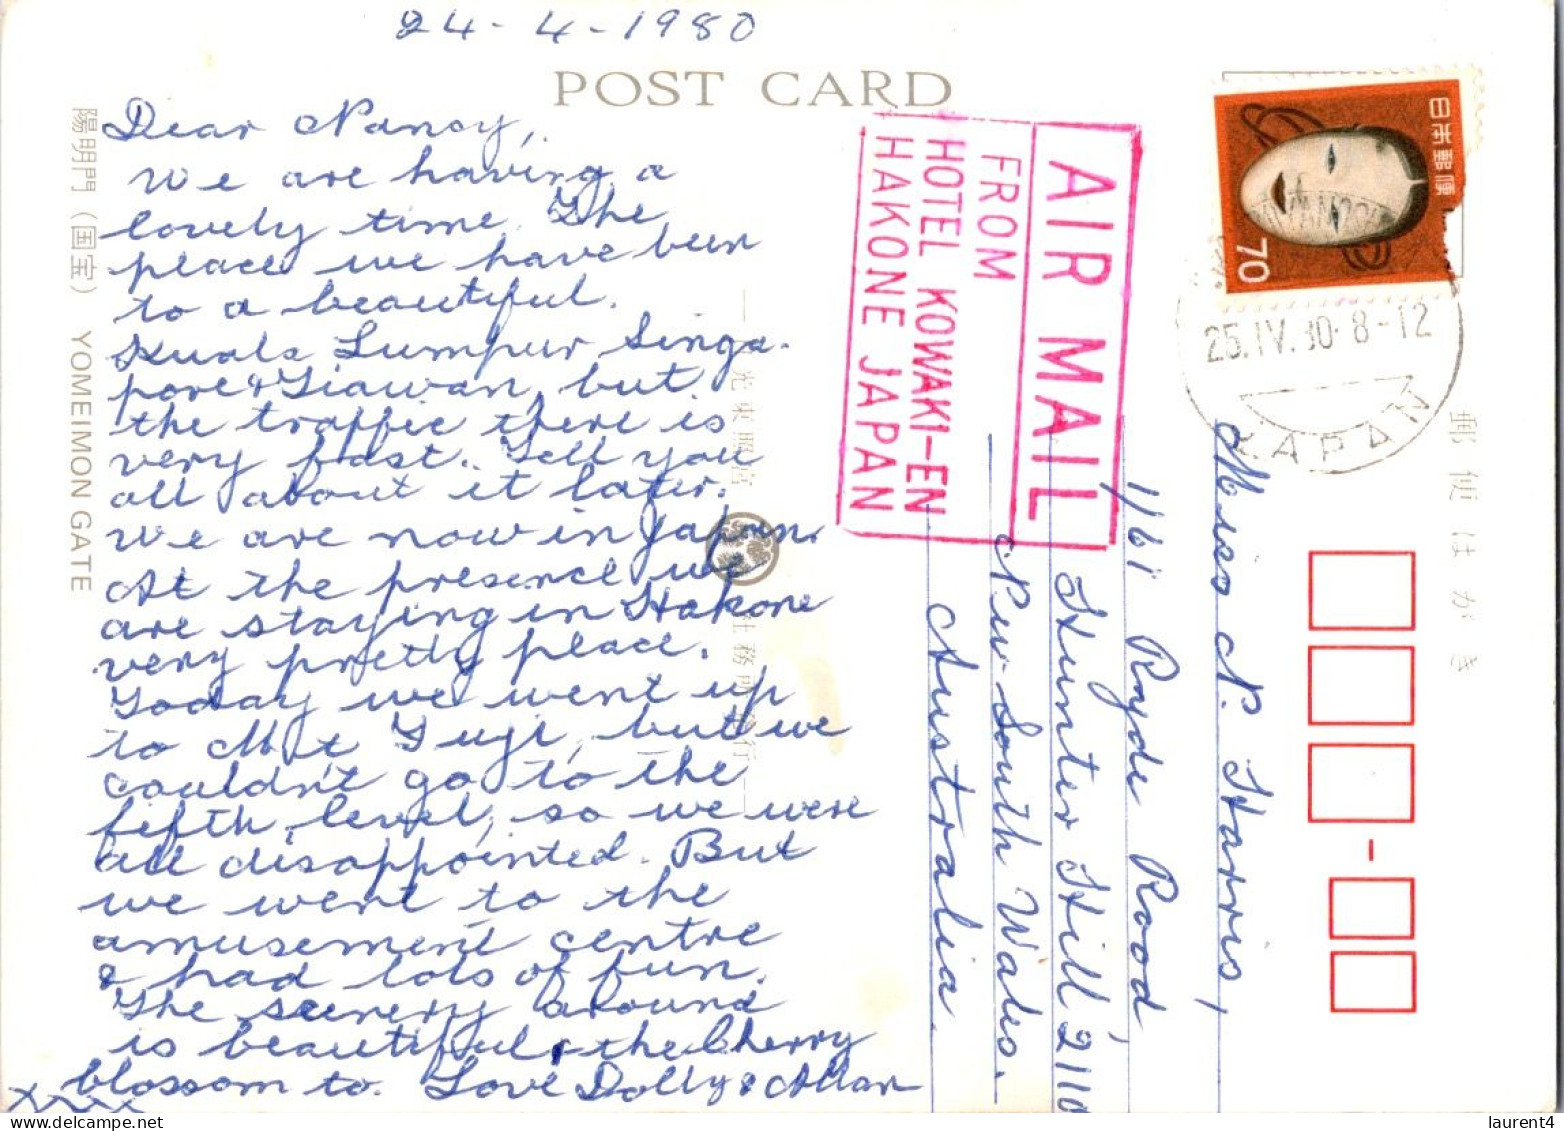 24-4-1980
POST CARD
Dear Nancy,
We are having a
lovely time. The
place we have been
to a beautiful.
Kuala Lumpur Singa-
pore & Tiawan, but
the traffic there is
very fast. Tell you
all about it later.
We are now in Japan.
At the presence we
are staying in Hakone
very pretty place.
Today we went up
to Mt Fugi, but we
couldn't go to the
fifth level, so we were
all disappointed. But
we went to the
amusement centre
& had lots of fun.
The scenery around
is beautiful & the Cherry
blossom to. Love Dolly & Allan
xxxx
陽明門（国宝） YOMEIMON GATE
光東照宮
社務所
行
AIR MAIL
FROM
HOTEL KOWAKI-EN
HAKONE JAPAN
日本郵便
70
25.IV.80. 8-12
JAPAN
郵便はがき
Miss N. Harris,
1/61 Ryde Road
Hunter Hill 2110
New South Wales.
Australia.
laurent4